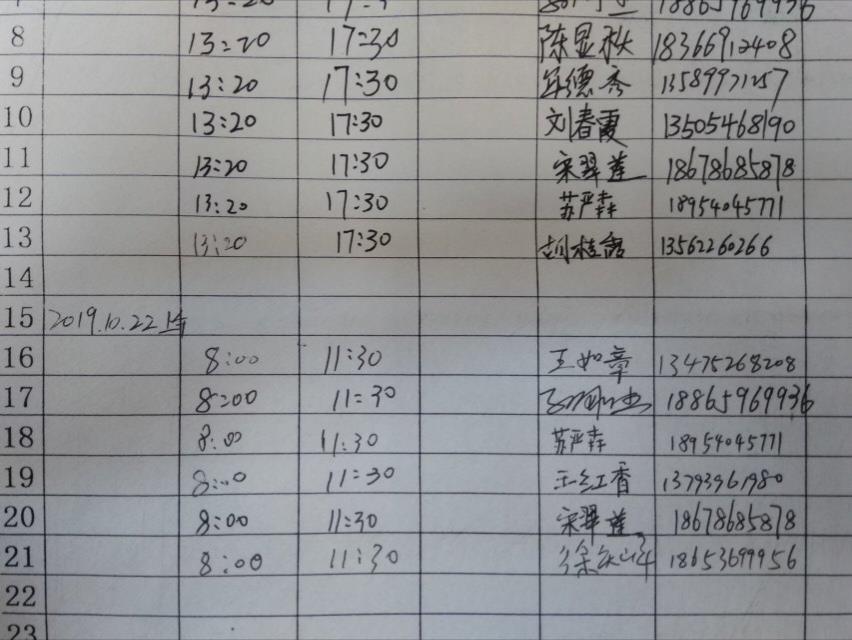 8 13:20 17:30 陈显秋 18366912408
9 13:20 17:30 德秀 13589971257
10 13:20 17:30 刘春霞 13505468190
11 13:20 17:30 宋翠莲 18678685878
12 13:20 17:30 苏严 18954045771
13 13:20 17:30 胡桂 13562260266
14
15 2019.10.22上午
16 8:00 11:30 王如章 13475268208
17 8:00 11:30 18865969936
18 8:00 11:30 苏严 18954045771
19 8:00 11:30 王红香 13793961980
20 8:00 11:30 宋翠莲 18678685878
21 8:00 11:30 徐 18653699956
22
23